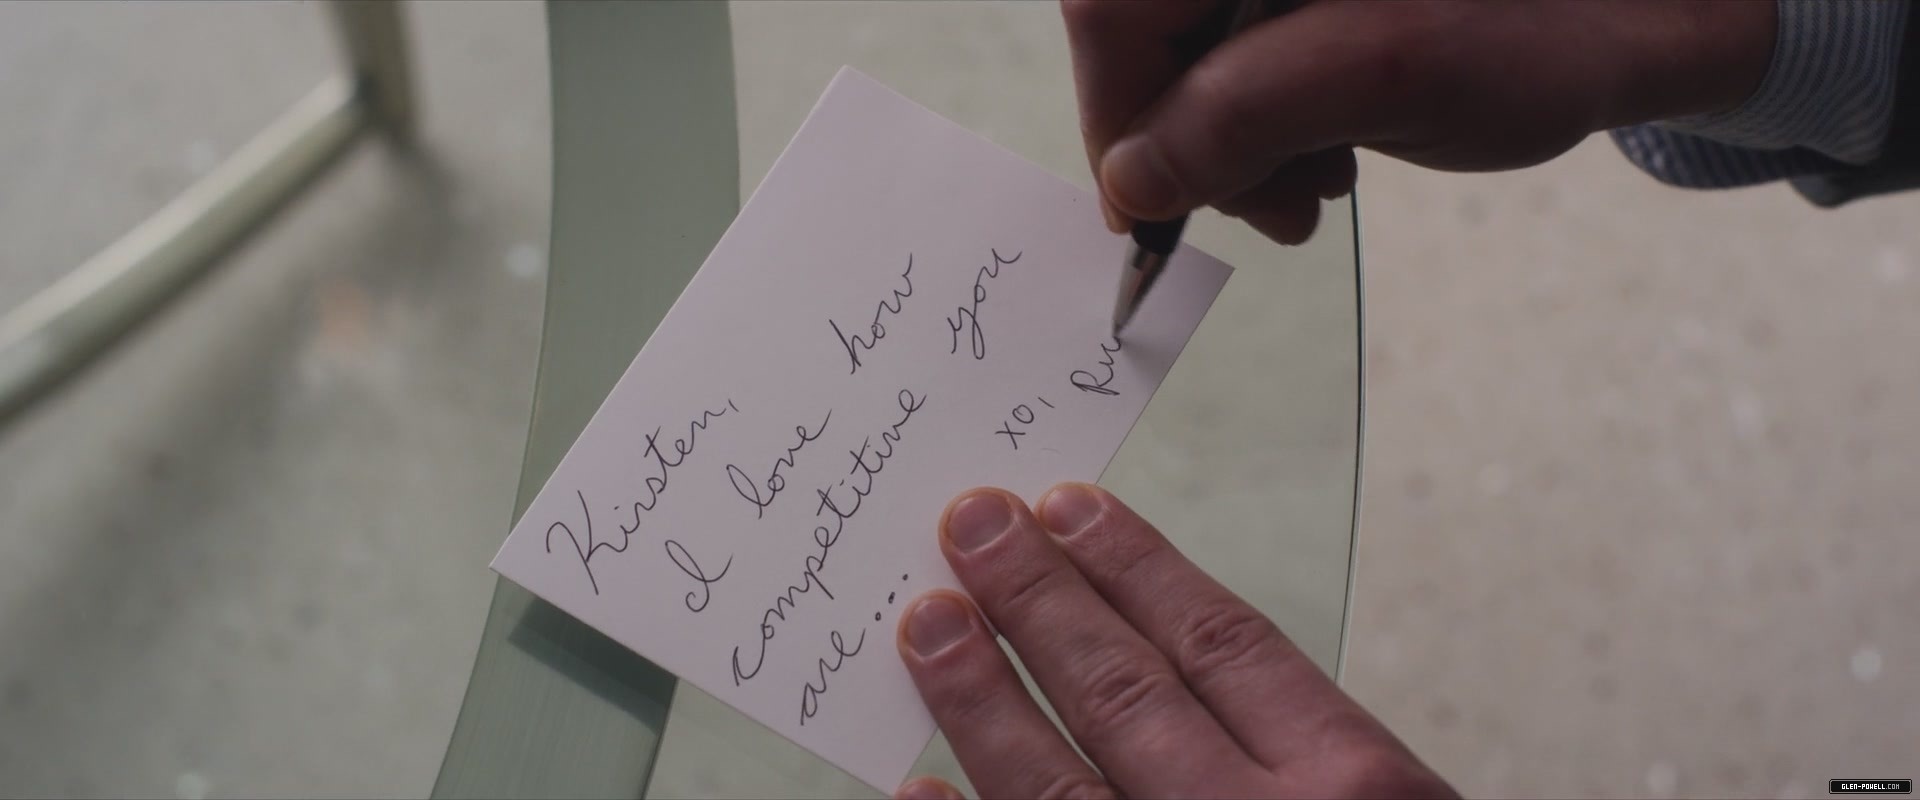 Kirsten,
I love how
competitive you
are...
xo, Ru
GLEN-POWELL.COM